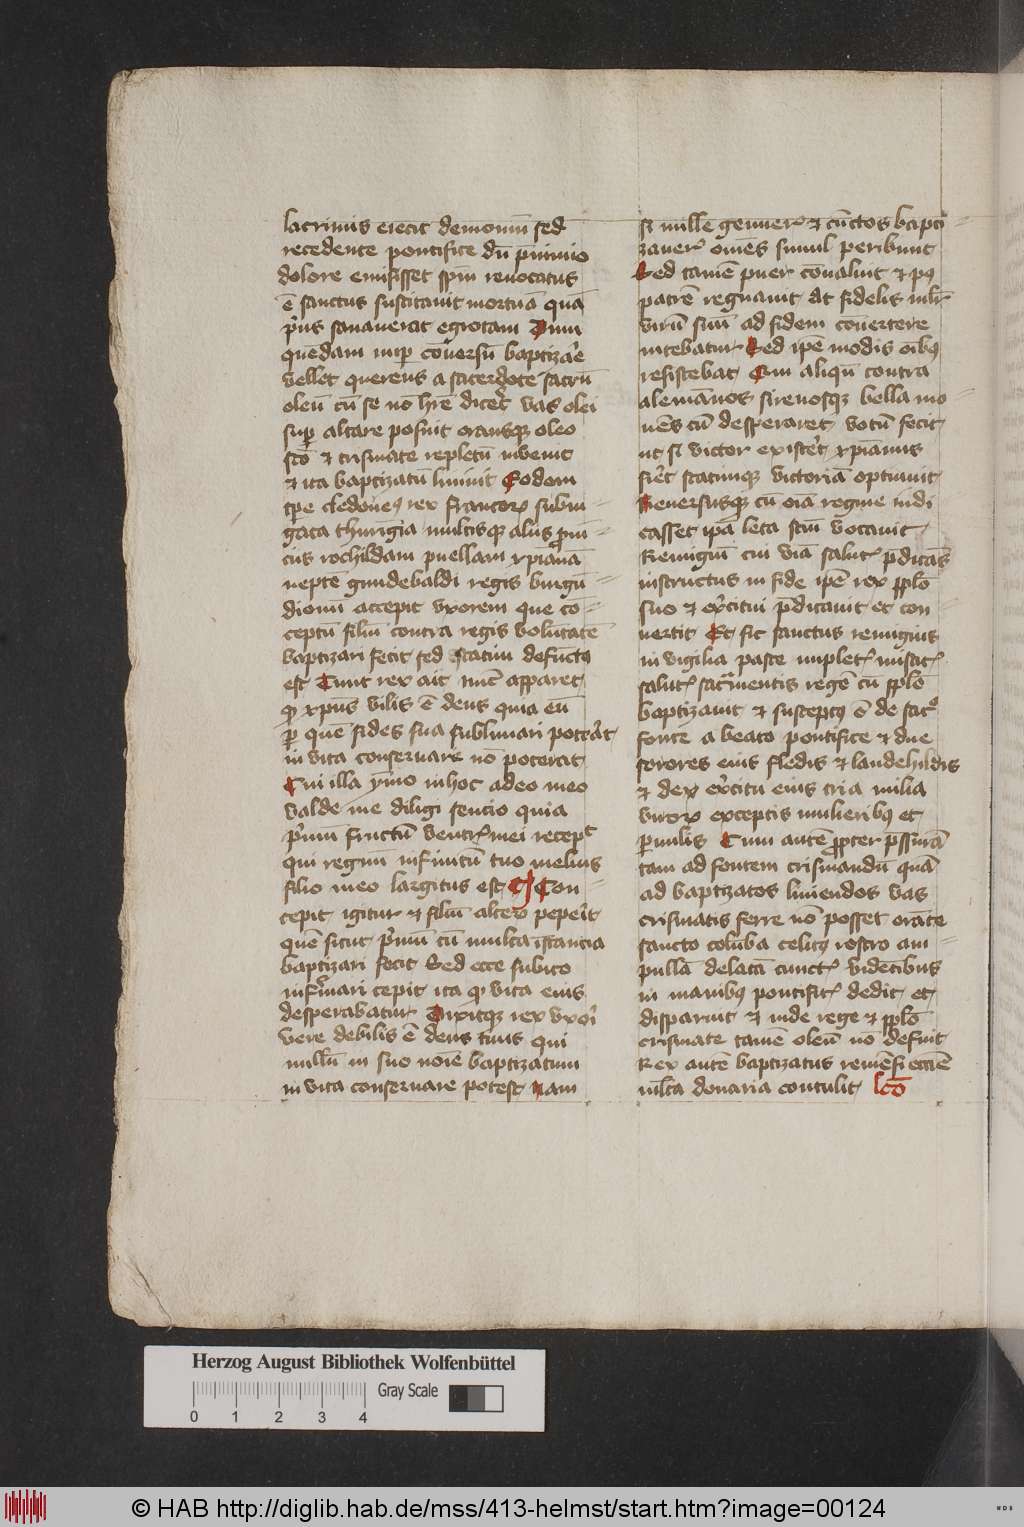 lacrimis eiecit demoniū sed
recedente pontifice dū p̄nimio
dolore emisisset spm̄ reuocatus
ē sanctus suscitauit mortuā quā
p̄us sanauerat egrotam Dum
quēdam nup̄ cōuersū baptizare
vellet querens a sacerdote sacrū
oleū cū se nō hr̄e dicet vas olei
sup̄ altare posuit oransq oleo
sc̄o et crismate repletū inuenit
et ita baptizatū liniuit Eodem
tpe cledoueꝰ rex francoꝝ subiu
gata thuringia multisq aliis
cus rochildam puellam xp̄ianā
neptē gundebaldi regis burgū
dionū accepit vxorem que cō
ceptū filiū contra regis volūtatē
baptizari fecit sed statim defūctꝰ
est Tunc rex ait nūc apparet
qꝫ xp̄us vilis ē deus quia eū
p̄ quē fides sua sublimari potat
in vita conseruare nō poterat
Cui illa ymo in hoc adeo meo
valde me diligi sencio quia
p̄mū fructū ventrꝭ mei recepit
qui regnū infinitū tuo melius
filio meo largitus est Con
cepit igitur et filiū alteꝝ pepeit
quē sicut p̄mū cū multa īstancia
baptizari fecit Sed ecce subito
infirmari cepit ita qꝫ vita eius
desperabatur Dixitqꝫ rex vxori
vere debilis ē deus tuus qui
nullū in suo noīe baptizatum
in vita conseruare potest Nam
si mille genuerꝭ et cūctos bapti
zauerꝭ om̄es simul peribunt
Sed tamē puer cōualuit et pꝰ
patrē regnauit At fidelis mlr̄
virū suū ad fidem cōuertere
nitebatur Sed ipe modis oībꝰ
resistebat Cum aliqñ contra
alemānos sireuosqꝫ bella mo
uēs cū desperaret votū fecit
ut si victor existet xp̄ianus
fiet statimqꝫ victoriā optinuit
Reuersusqꝫ cū oīa regine indi
casset ipā leta sc̄m vocauit
Remigiū cui viā salutꝭ p̄dicās
instructus in fide ipē rex pplō
suo et ex̄citui p̄dicauit et con
uertit Et sic sanctus remigius
in vigilia pasce impletꝭ misticꝭ
salutꝭ sacramentis regē cū pplō
baptizauit et susceptꝰ ē de sac̊
fonte a beato pontifice et due
sorores eius fledis et landehildis
et dex ex̄citu eius tria milia
viroꝝ exceptis mulieribꝰ et
p̄uulis Cum autē propter p̄ssurā
tam ad fontem crismandū quā
ad baptizatos liniendos vas
crismatis ferre nō posset orāte
sancto colūba celitꝰ rostro am
pullā delatā cunctꝭ videtibus
in manibꝰ pontificꝭ dedit et
disparuit et inde rege et pplō
crismate tamē oleū nō defuit
Rex autē baptizatus remēsi eccīe
ml̄ta donaria contulit lc̄o
Herzog August Bibliothek Wolfenbüttel
Gray Scale
0 1 2 3 4
© HAB http://diglib.hab.de/mss/413-helmst/start.htm?image=00124